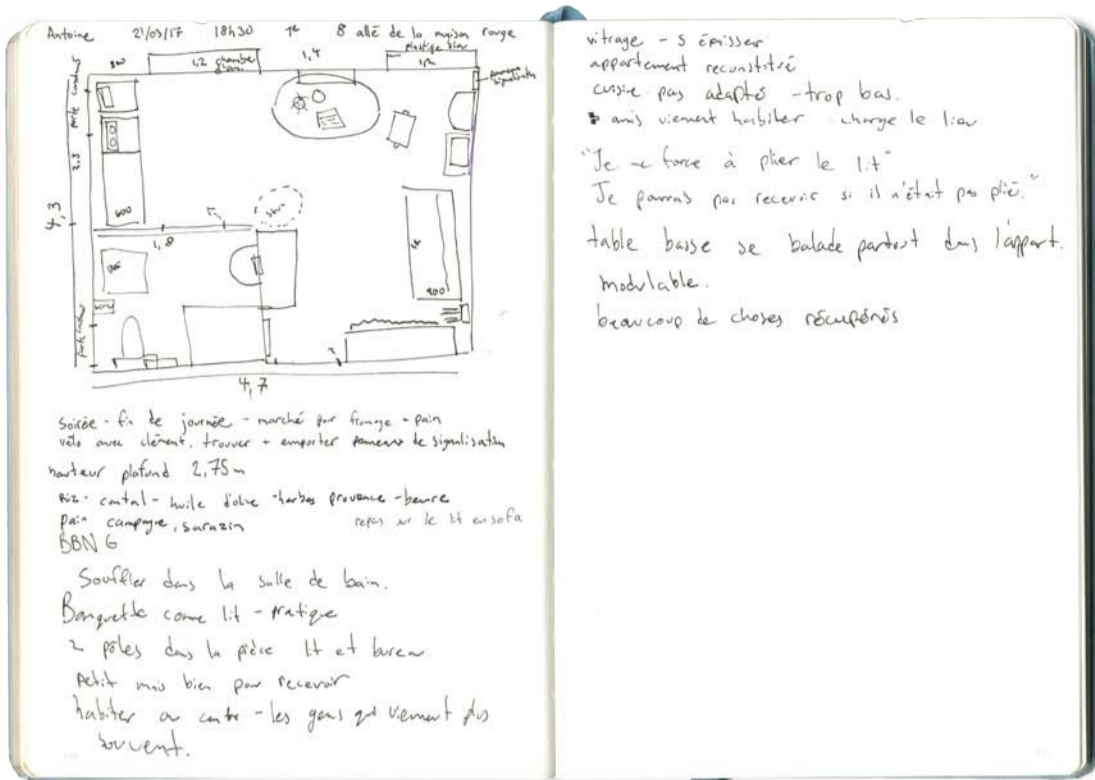 Antoine 21/03/17 18h30 1e 8 allé de la maison rouge
plastique bleu
300 1,2 chambre 1,4 1,2
panneau signalisation
porte
2,3
4,3
600
1,8
900
4,7
soirée - fin de journée - marché pour fromage + pain
vélo avec clément. trouver + emporter panneaux de signalisation
hauteur plafond 2,75m
Riz - cantal - huile d'olive - herbes provence - beurre
pain campagne, sarazin repas sur le lit en sofa
BBN 6
Souffler dans la salle de bain.
Banquette comme lit - pratique
2 pôles dans la pièce lit et bureau
petit mais bien pour recevoir
habiter au centre - les gens qui viennent plus
souvent.
vitrage - 5 épaisseur
appartement reconstitué
cuisine pas adapté - trop bas.
amis viennent habiter charge le lieu
"Je me force à plier le lit"
Je pourrais pas recevoir si il n'était pas plié."
table basse se balade partout dans l'appart.
modulable.
beaucoup de choses récupérés